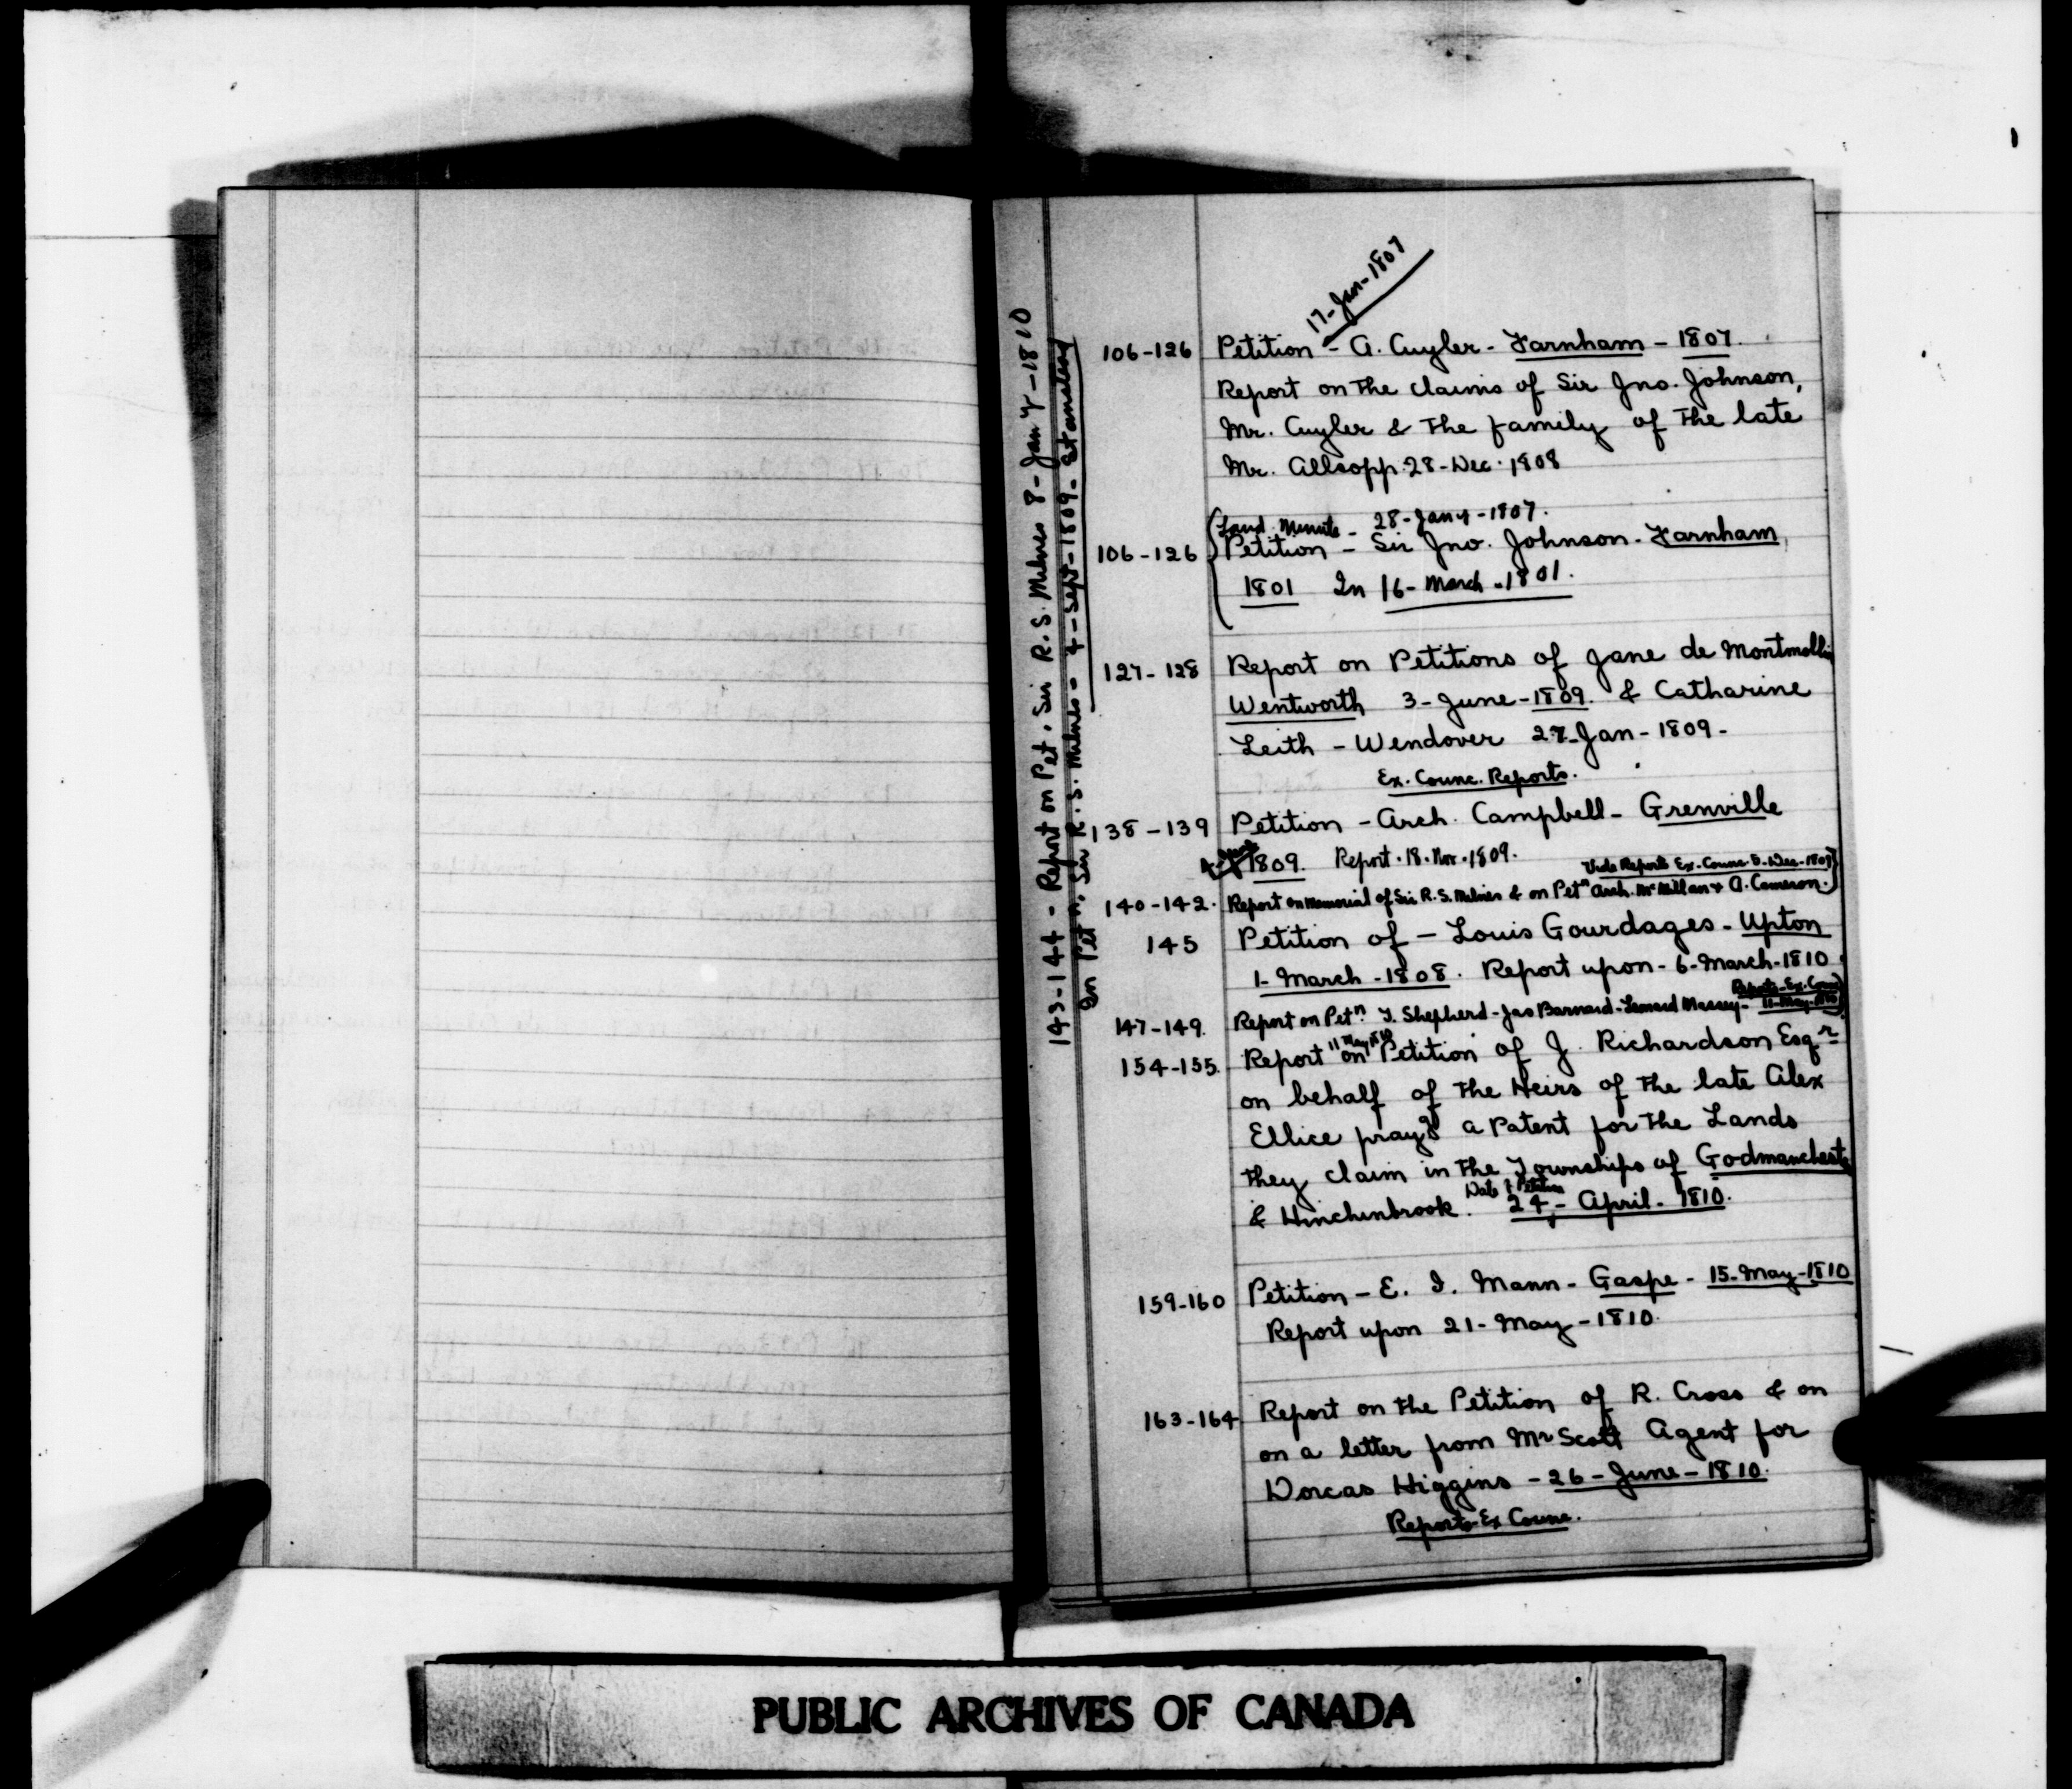 17-Jan-1807
106-126 Petition - A. Cuyler - Farnham - 1807.
Report on the claims of Sir Jno. Johnson,
Mr. Cuyler & the family of the late
Mr. Allsopp. 28-Dec. 1808
Land Minute - 28-Jany-1807.
106-126 Petition - Sir Jno. Johnson - Farnham
1801 In 16-March-1801.
127-128 Report on Petitions of Jane de Montmollin
Wentworth 3-June-1809. & Catharine
Leith - Wendover 27-Jan-1809-
Ex. Counc. Reports.
138-139 Petition - Arch. Campbell - Grenville
1809. Report. 18. Nov. 1809.
Vide Reports Ex. Counc. 5-Dec-1809
140-142. Report on Memorial of Sir R. S. Milnes & on Petn Arch. McMillan & A. Cameron.
145 Petition of - Louis Gourdages - Upton
1-March-1808. Report upon - 6-March-1810
Reports-Ex. Counc
11-May-1810
147-149. Report on Petn. T. Shepherd - Jas Barnard - Leonard Massey -
11 May 1810
154-155. Report on Petition of J. Richardson Esqr
on behalf of the Heirs of the late Alex
Ellice prayg a Patent for the Lands
they claim in the Townships of Godmanchester
Date of Petition
& Hinchinbrook. 24-April-1810.
159-160 Petition - E. I. Mann - Gaspe - 15-May-1810
Report upon 21-May-1810.
163-164 Report on the Petition of R. Cross & on
on a letter from Mr Scott Agent for
Dorcas Higgins - 26-June-1810.
Reports-Ex Counc.
143-144 - Report on Pet. Sir R. S. Milnes 8-Jany-1810
On Petn, Sir R. S. Milnes - 4-Sept-1809 - Stanstead
PUBLIC ARCHIVES OF CANADA